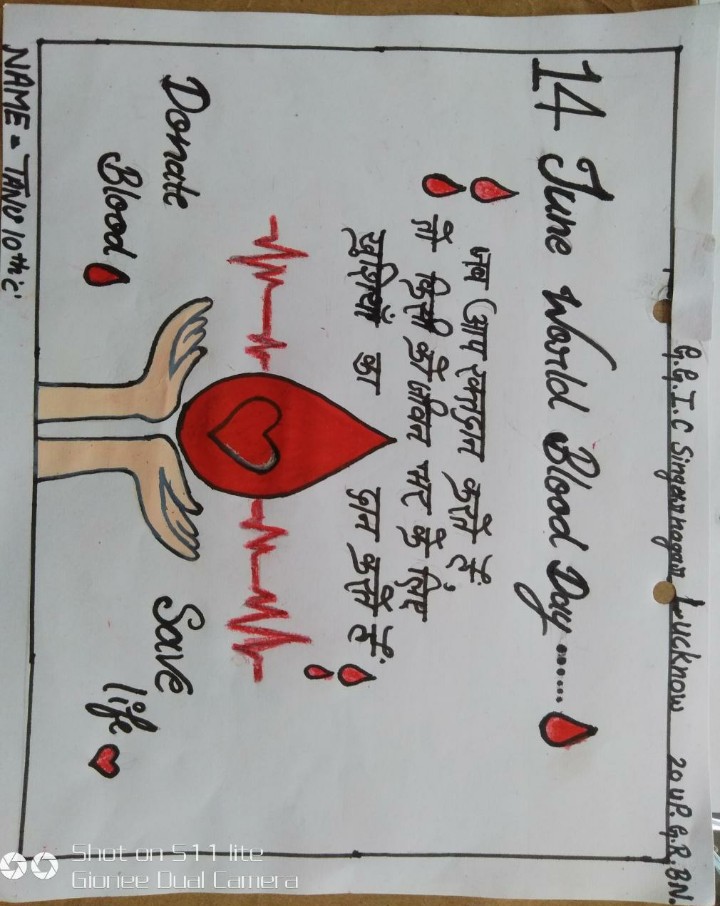 G.G.I.C Singarnagar Lucknow 20 UP. G.R. BN.
14 June World Blood Day......
जब आप रक्तदान करते हैं
तो किसी को जीवन भर के लिए
खुशियों का दान करते हैं
Donate Save
Blood life
NAME = TANU 10th 'c'
Shot on S11 lite
Gionee Dual Camera